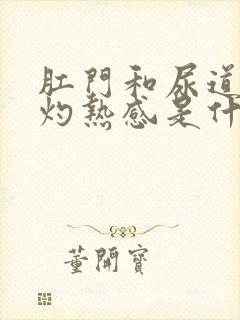 肛門和尿道
灼熱感是什
董開寶